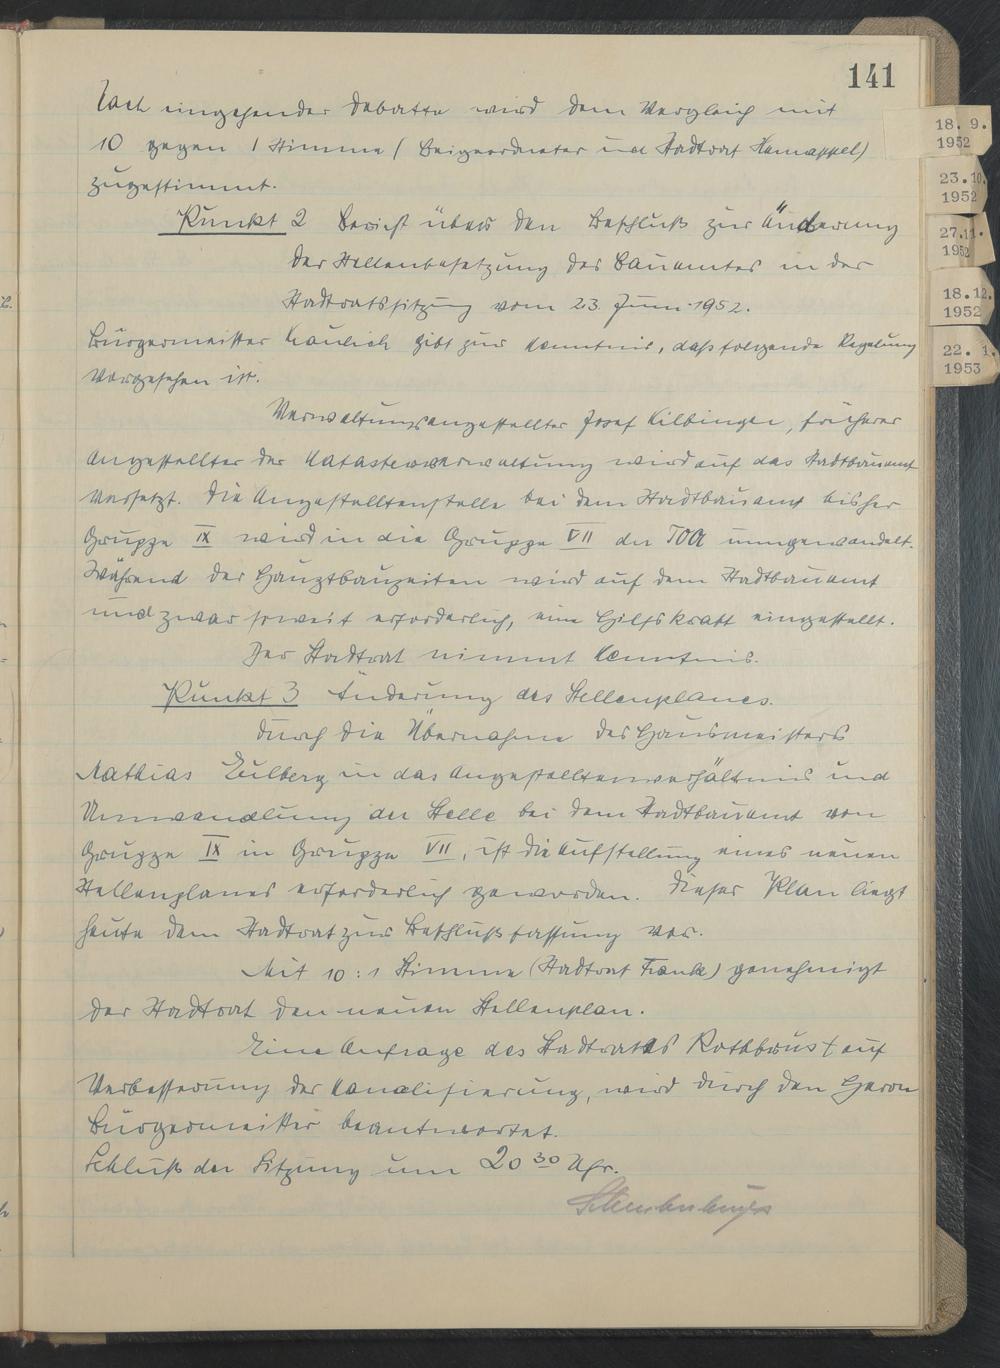 141
Nach eingehender Debatte wird dem Vergleich mit
10 gegen 1 Stimme (Beigeordneter und Stadtrat Hamappel)
zugestimmt.
Punkt 2 Bericht über den Beschluß zur Änderung
der Stellenbesetzung des Bauamtes in der
Stadtratssitzung vom 23. Juni 1952.
Bürgermeister Haulich gibt zur Kenntnis, daß folgende Regelung
vorgesehen ist.
Verwaltungsangestellter Josef Hilbinger, früherer
Angestellter der Katasterverwaltung wird auf das Stadtbauamt
versetzt. Die Angestelltenstelle bei dem Stadtbauamt bisher
Gruppe IX wird in die Gruppe VII der TOA umgewandelt.
Während der Hauptbauzeiten wird auf dem Stadtbauamt
und zwar soweit erforderlich, eine Hilfskraft eingestellt.
Der Stadtrat nimmt Kenntnis.
Punkt 3 Änderung des Stellenplanes.
Durch die Übernahme des Hausmeisters
Mathias Eulberg in das Angestelltenverhältnis und
Umwandlung der Stelle bei dem Stadtbauamt von
Gruppe IX in Gruppe VII, ist die Aufstellung eines neuen
Stellenplanes erforderlich geworden. Dieser Plan liegt
heute dem Stadtrat zur Beschlußfassung vor.
Mit 10:1 Stimme (Stadtrat Frank) genehmigt
der Stadtrat den neuen Stellenplan.
Eine Anfrage des Stadtrates Rothbrust auf
Verbesserung der Kanalisierung, wird durch den Herrn
Bürgermeister beantwortet.
Schluß der Sitzung um 20 30 Uhr.
18. 9.
1952
23.10.
1952
27.11.
1952
18.12.
1952
22. 1.
1953